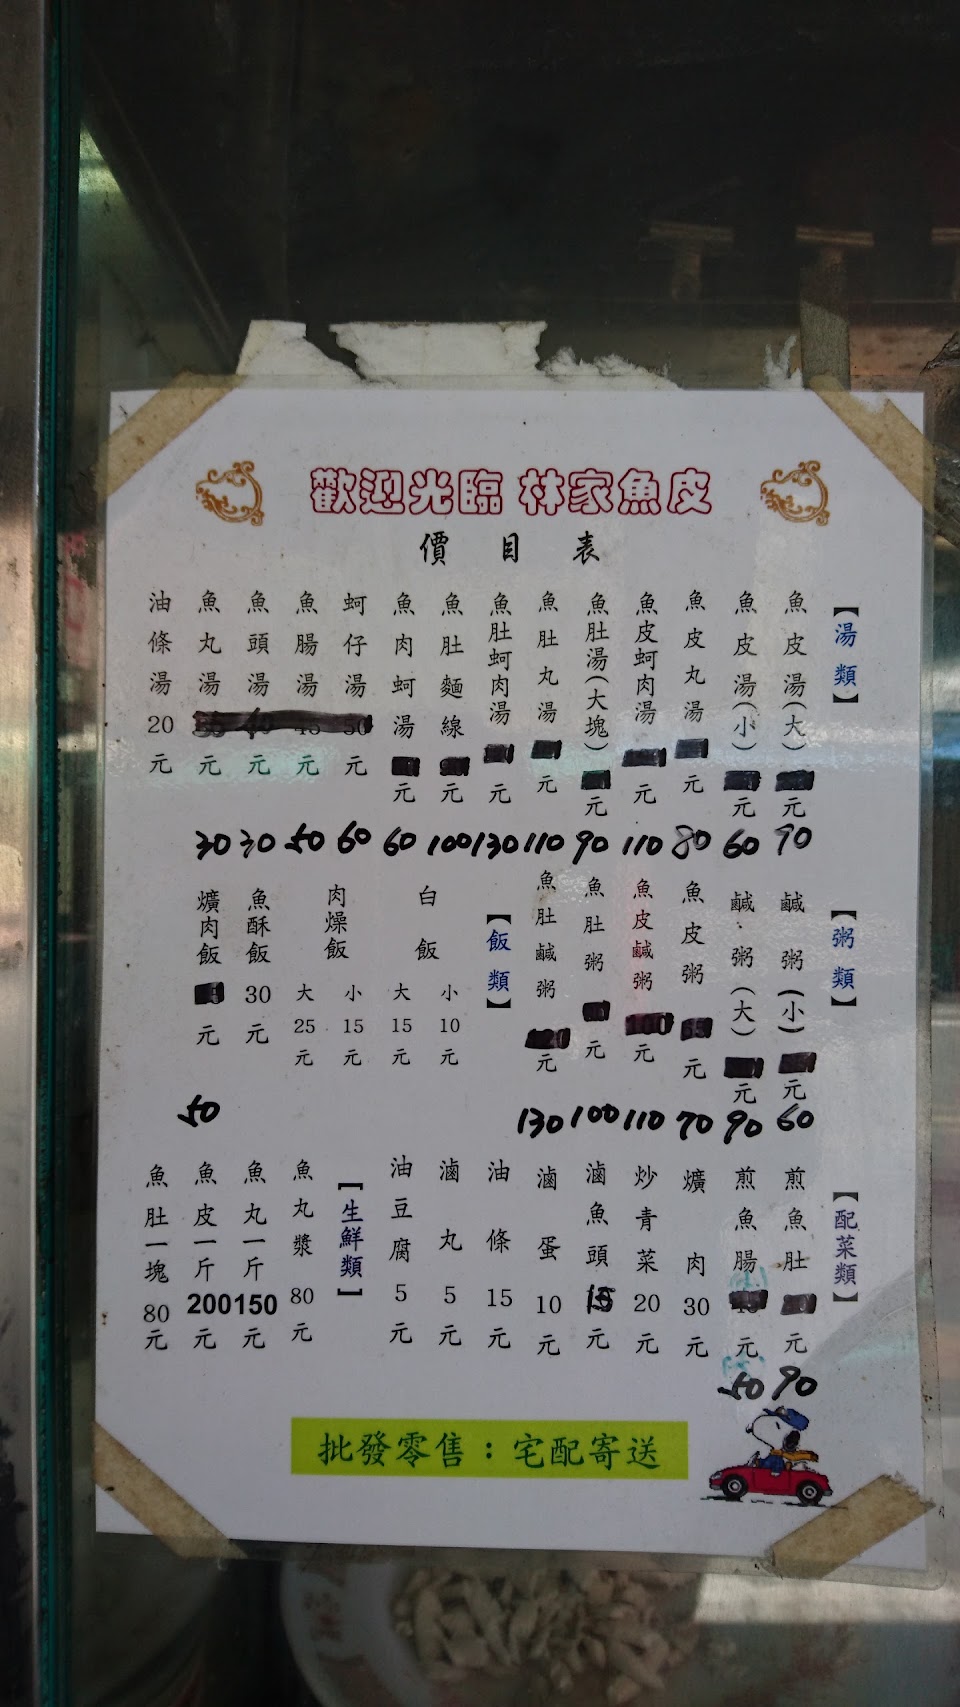 歡迎光臨 林家魚皮
價目表
【湯類】
魚皮湯(大) 元 90
魚皮湯(小) 元 60
魚皮丸湯 元 80
魚皮蚵肉湯 元 110
魚肚湯(大塊) 元 90
魚肚丸湯 元 110
魚肚蚵肉湯 元 130
魚肚麵線 元 100
魚肉蚵湯 元 60
蚵仔湯 50 元 60
魚腸湯 45 元 50
魚頭湯 元 30
魚丸湯 元 30
油條湯 20 元
【粥類】
鹹粥(小) 元 60
鹹粥(大) 元 90
魚皮粥 65 元 70
魚皮鹹粥 100 元 110
魚肚粥 元 100
魚肚鹹粥 120 元 130
【飯類】
白飯 小 10 元 大 15 元
肉燥飯 小 15 元 大 25 元
魚酥飯 30 元
爌肉飯 元 50
【配菜類】
煎魚肚 元 90
煎魚腸 45 元 50
爌肉 30 元
炒青菜 20 元
滷魚頭 15 元
滷蛋 10 元
油條 15 元
滷丸 5 元
油豆腐 5 元
【生鮮類】
魚丸漿 80 元
魚丸一斤 150 元
魚皮一斤 200 元
魚肚一塊 80 元
批發零售：宅配寄送